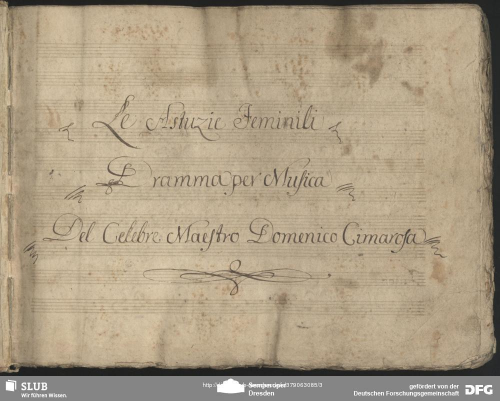 Le Astuzie Feminili
Dramma per Musica
Del Celebre Maestro Domenico Cimarosa
SLUB
Wir führen Wissen.
Dresden
gefördert von der
Deutschen Forschungsgemeinschaft
DFG